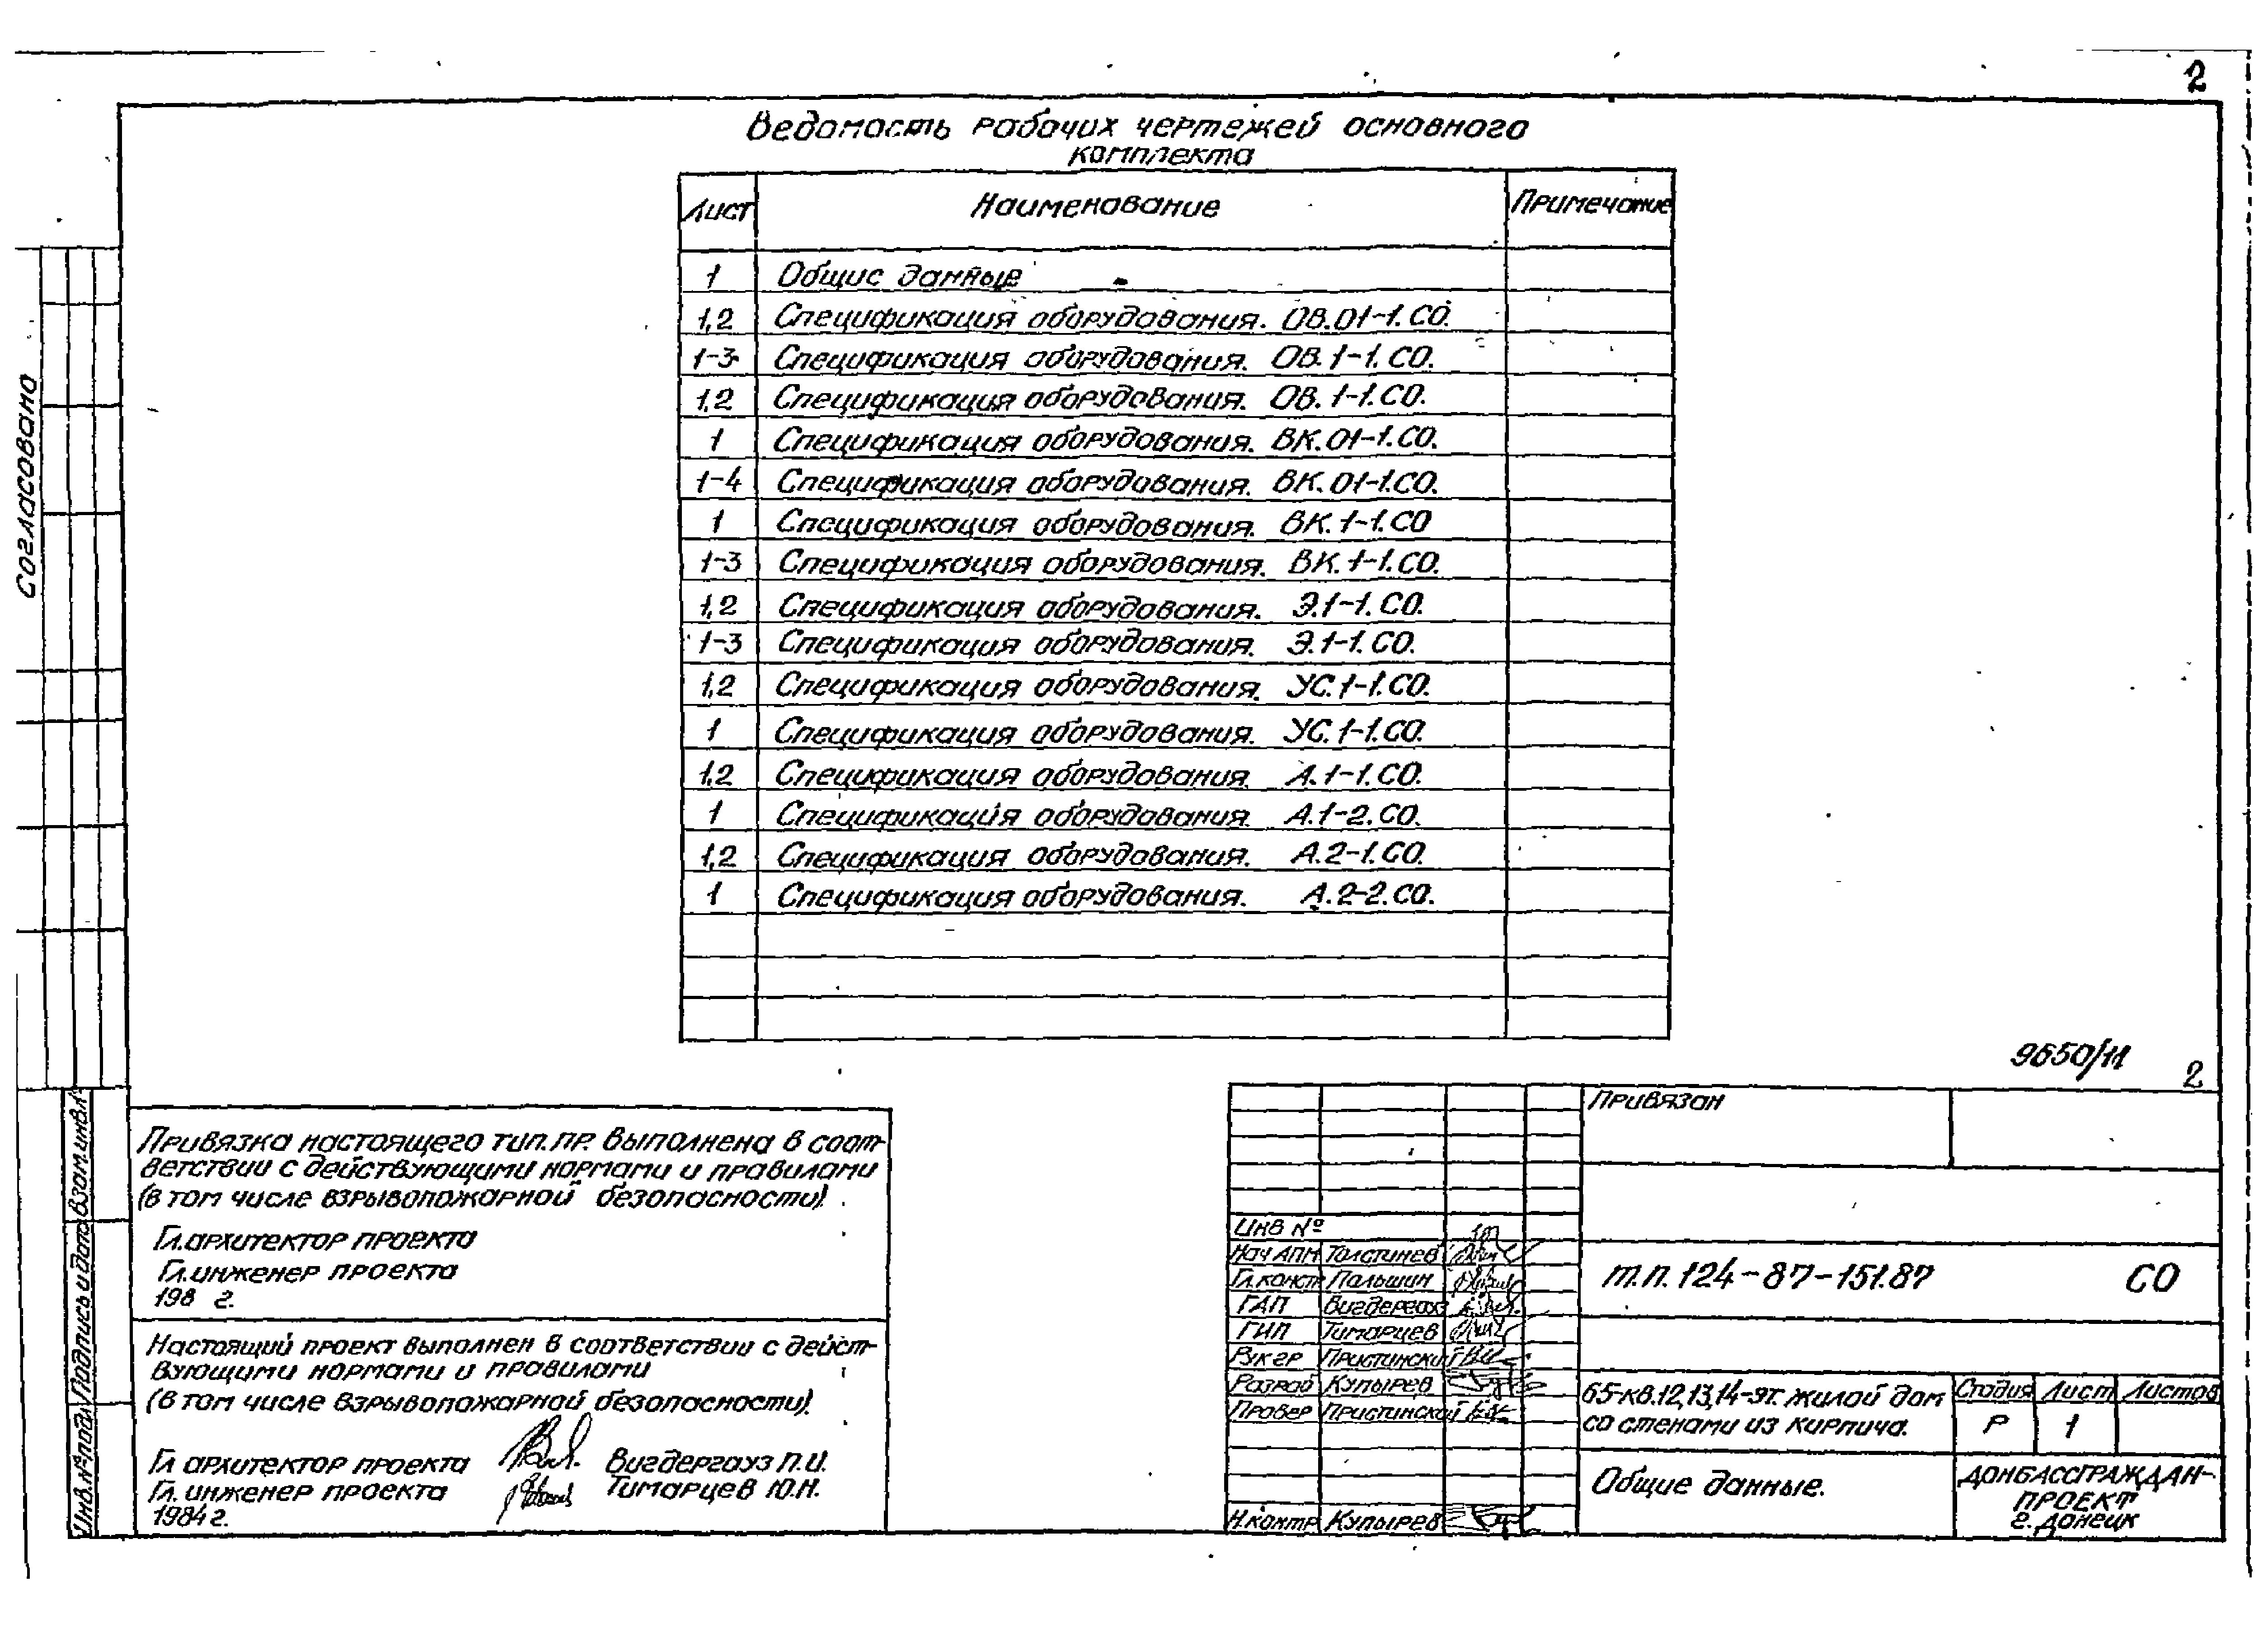 2
Ведомость рабочих чертежей основного
комплекта
Лист Наименование Примечание
1 Общие данные
1,2 Спецификация оборудования. ОВ.01-1.СО.
1-3 Спецификация оборудования. ОВ.1-1.СО.
1,2 Спецификация оборудования. ОВ.1-1.СО.
1 Спецификация оборудования. ВК.01-1.СО.
1-4 Спецификация оборудования. ВК.01-1.СО.
1 Спецификация оборудования. ВК.1-1.СО
1-3 Спецификация оборудования. ВК.1-1.СО.
1,2 Спецификация оборудования. Э.1-1.СО.
1-3 Спецификация оборудования. Э.1-1.СО.
1,2 Спецификация оборудования. УС.1-1.СО.
1 Спецификация оборудования. УС.1-1.СО.
1,2 Спецификация оборудования. А.1-1.СО.
1 Спецификация оборудования. А.1-2.СО.
1,2 Спецификация оборудования. А.2-1.СО.
1 Спецификация оборудования. А.2-2.СО.
Согласовано
Взам.инв.№
Подпись и дата
Инв.№подл
9650/11 2
Привязка настоящего тип.пр. выполнена в соот-
ветствии с действующими нормами и правилами
(в том числе взрывопожарной безопасности)
Гл.архитектор проекта
Гл.инженер проекта
198 г.
Настоящий проект выполнен в соответствии с дейст-
вующими нормами и правилами
(в том числе взрывопожарной безопасности)
Гл архитектор проекта Вигдергауз П.И.
Гл. инженер проекта Тимарцев Ю.Н.
1984г.
Привязан
Инв №
Нач АПМ Толстинев
Гл.конст Пальшин
ГАП Вигдергауз
ГИП Тимарцев
Рук гр Пристински
Разраб Купырев
Провер Пристинский
Н.контр Купырев
т.п. 124-87-151.87 СО
65-кв.12,13,14-эт. жилой дом
со стенами из кирпича.
Стадия Лист Листов
Р 1
Общие данные.
ДОНБАССГРАЖДАН-
ПРОЕКТ
г. Донецк